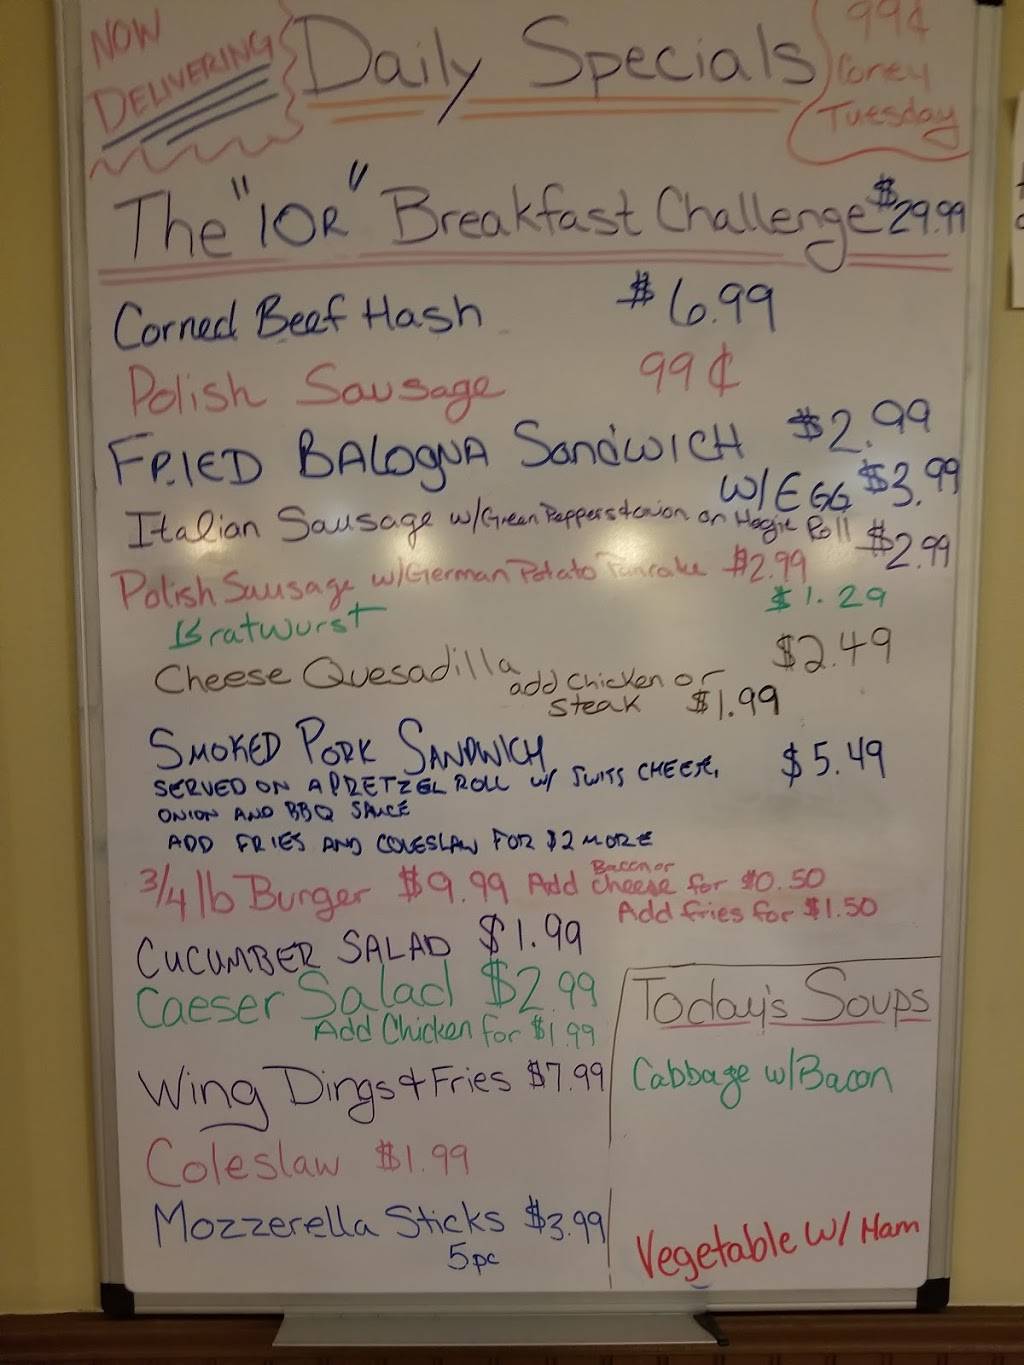 NOW
DELIVERING
Daily Specials
99¢
Coney
Tuesday
The "IOR" Breakfast Challenge $29.99
Corned Beef Hash $6.99
Polish Sausage 99¢
FRIED BALOGNA SANDWICH $2.99
W/EGG $3.99
Italian Sausage w/Green Peppers & onion on Hogie Roll $2.99
Polish Sausage w/German Potato Pancake $2.99
Bratwurst $1.29
Cheese Quesadilla $2.49
add chicken or
steak $1.99
SMOKED PORK SANDWICH $5.49
SERVED ON A PRETZEL ROLL W/ SWISS CHEESE,
ONION AND BBQ SAUCE
ADD FRIES AND COLESLAW FOR $2 MORE
3/4 lb Burger $9.99 Add Bacon or cheese for $0.50
Add fries for $1.50
CUCUMBER SALAD $1.99
Caeser Salad $2.99
Add Chicken for $1.99
Wing Dings & Fries $7.99
Coleslaw $1.99
Mozzerella Sticks $3.99
5pc
Today's Soups
Cabbage w/Bacon
Vegetable w/ Ham